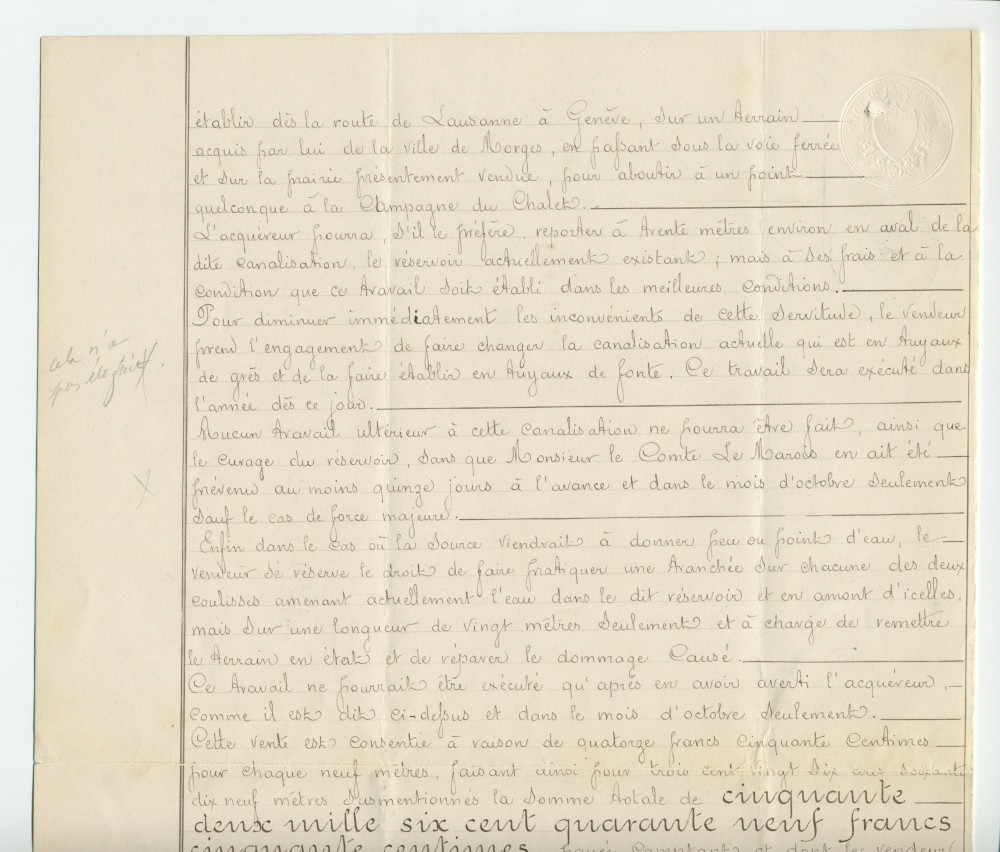 établir dès la route de Lausanne à Genève, sur un terrain
acquis par lui de la ville de Morges, en passant sous la voie ferrée
et sur la prairie présentement vendue, pour aboutir à un point
quelconque à la Campagne du Chalet.
L'acquéreur pourra, s'il le préfère, reporter à trente mètres environ en aval de la
dite canalisation, le réservoir actuellement existant; mais à ses frais et à la
condition que ce travail soit établi dans les meilleures conditions.
Pour diminuer immédiatement les inconvénients de cette servitude, le vendeur
cela n'a
prend l'engagement de faire changer la canalisation actuelle qui est en tuyaux
pas été fait.
de grès et de la faire établir en tuyaux de fonte. Ce travail sera exécuté dans
l'année dès ce jour.
Aucun travail ultérieur à cette canalisation ne pourra être fait, ainsi que
le curage du réservoir, sans que Monsieur le Comte Le Marois en ait été
prévenu au moins quinze jours à l'avance et dans le mois d'octobre seulement
sauf le cas de force majeure.
Enfin dans le cas où la source viendrait à donner peu ou point d'eau, le
vendeur se réserve le droit de faire pratiquer une tranchée sur chacune des deux
coulisses amenant actuellement l'eau dans le dit réservoir et en amont d'icelles,
mais sur une longueur de vingt mètres seulement et à charge de remettre
le terrain en état et de réparer le dommage causé.
Ce travail ne pourrait être exécuté qu'après en avoir averti l'acquéreur,
comme il est dit ci-dessus et dans le mois d'octobre seulement.
Cette vente est consentie à raison de quatorze francs cinquante centimes
pour chaque neuf mètres, faisant ainsi pour trois cent vingt six ares soixante
dix neuf mètres susmentionnés la somme totale de cinquante
deux mille six cent quarante neuf francs
cinquante centimes payée comptant et dont le vendeur